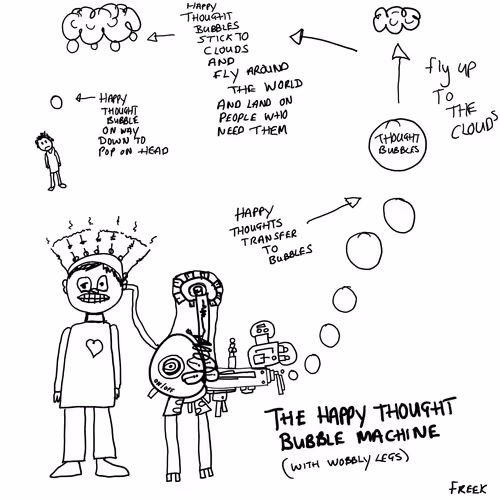 HAPPY
THOUGHT
BUBBLES
STICK TO
CLOUDS
AND
FLY AROUND
THE WORLD
AND LAND ON
PEOPLE WHO
NEED THEM
fly up
TO
THE
CLOUDS
HAPPY
THOUGHT
BUBBLE
ON WAY
DOWN TO
POP ON HEAD
THOUGHT
BUBBLES
HAPPY
THOUGHTS
TRANSFER
TO
BUBBLES
ON/OFF
THE HAPPY THOUGHT
BUBBLE MACHINE
(WITH WOBBLY LEGS)
FREEK